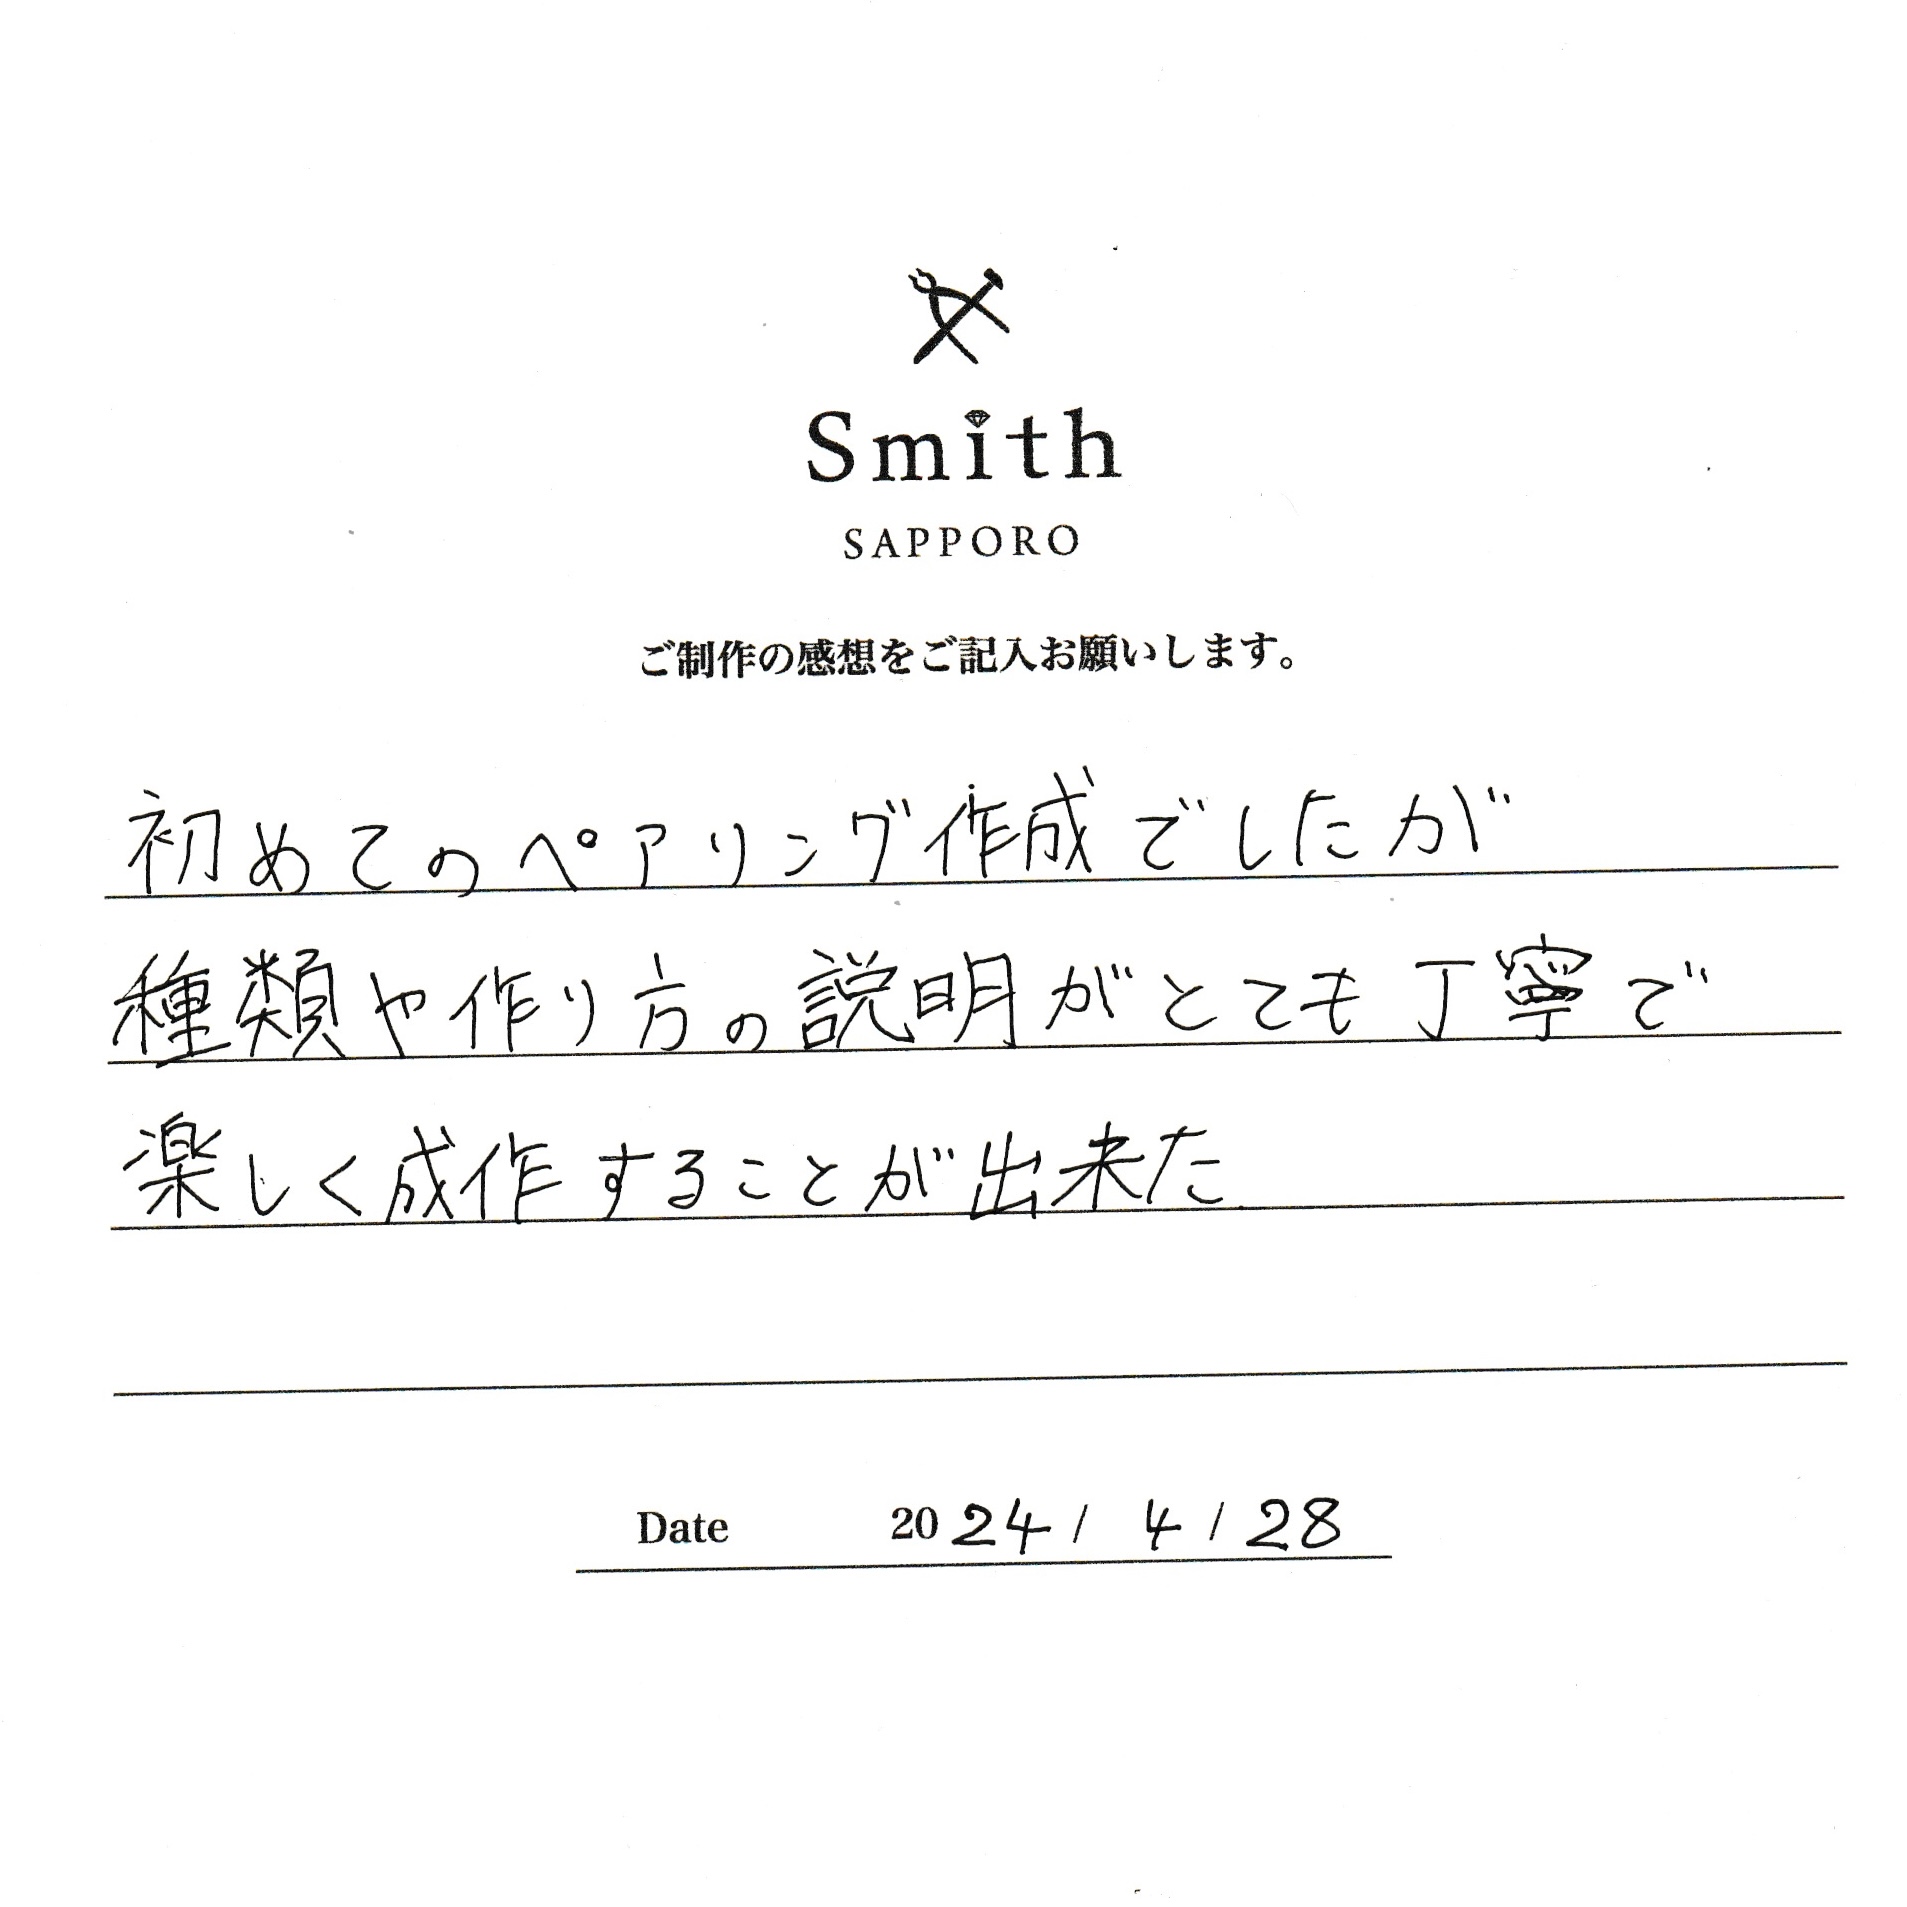 Smith
SAPPORO
ご制作の感想をご記入お願いします。
初めてのペアリング作成でしたが
種類や作り方の説明がとても丁寧で
楽しく成作することが出来た
Date 2024/4/28